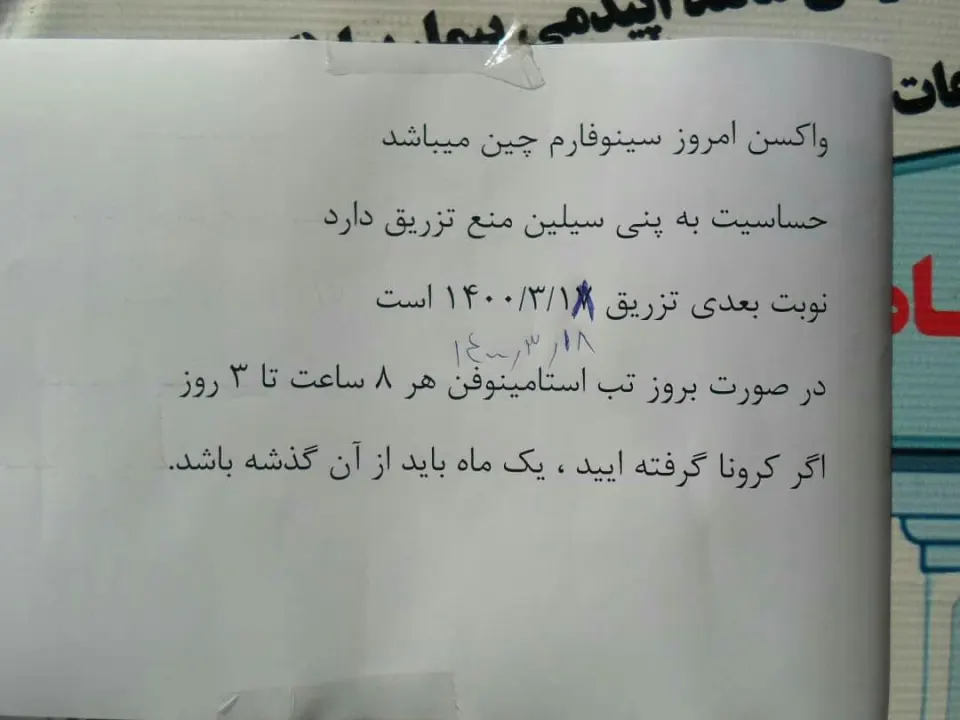 اپیدمی
واکسن امروز سینوفارم چین میباشد
حساسیت به پنی سیلین منع تزریق دارد
نوبت بعدی تزریق ۱۴۰۰/۳/۱ است
۱۴۰۰٫۳٫۱۸
در صورت بروز تب استامینوفن هر ۸ ساعت تا ۳ روز
اگر کرونا گرفته ایید ، یک ماه باید از آن گذشته باشد.